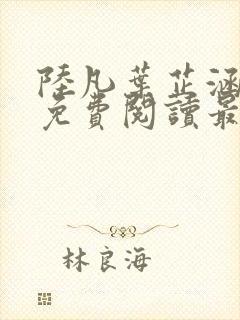 陸凡葉芷涵
免費閱讀最
林良海